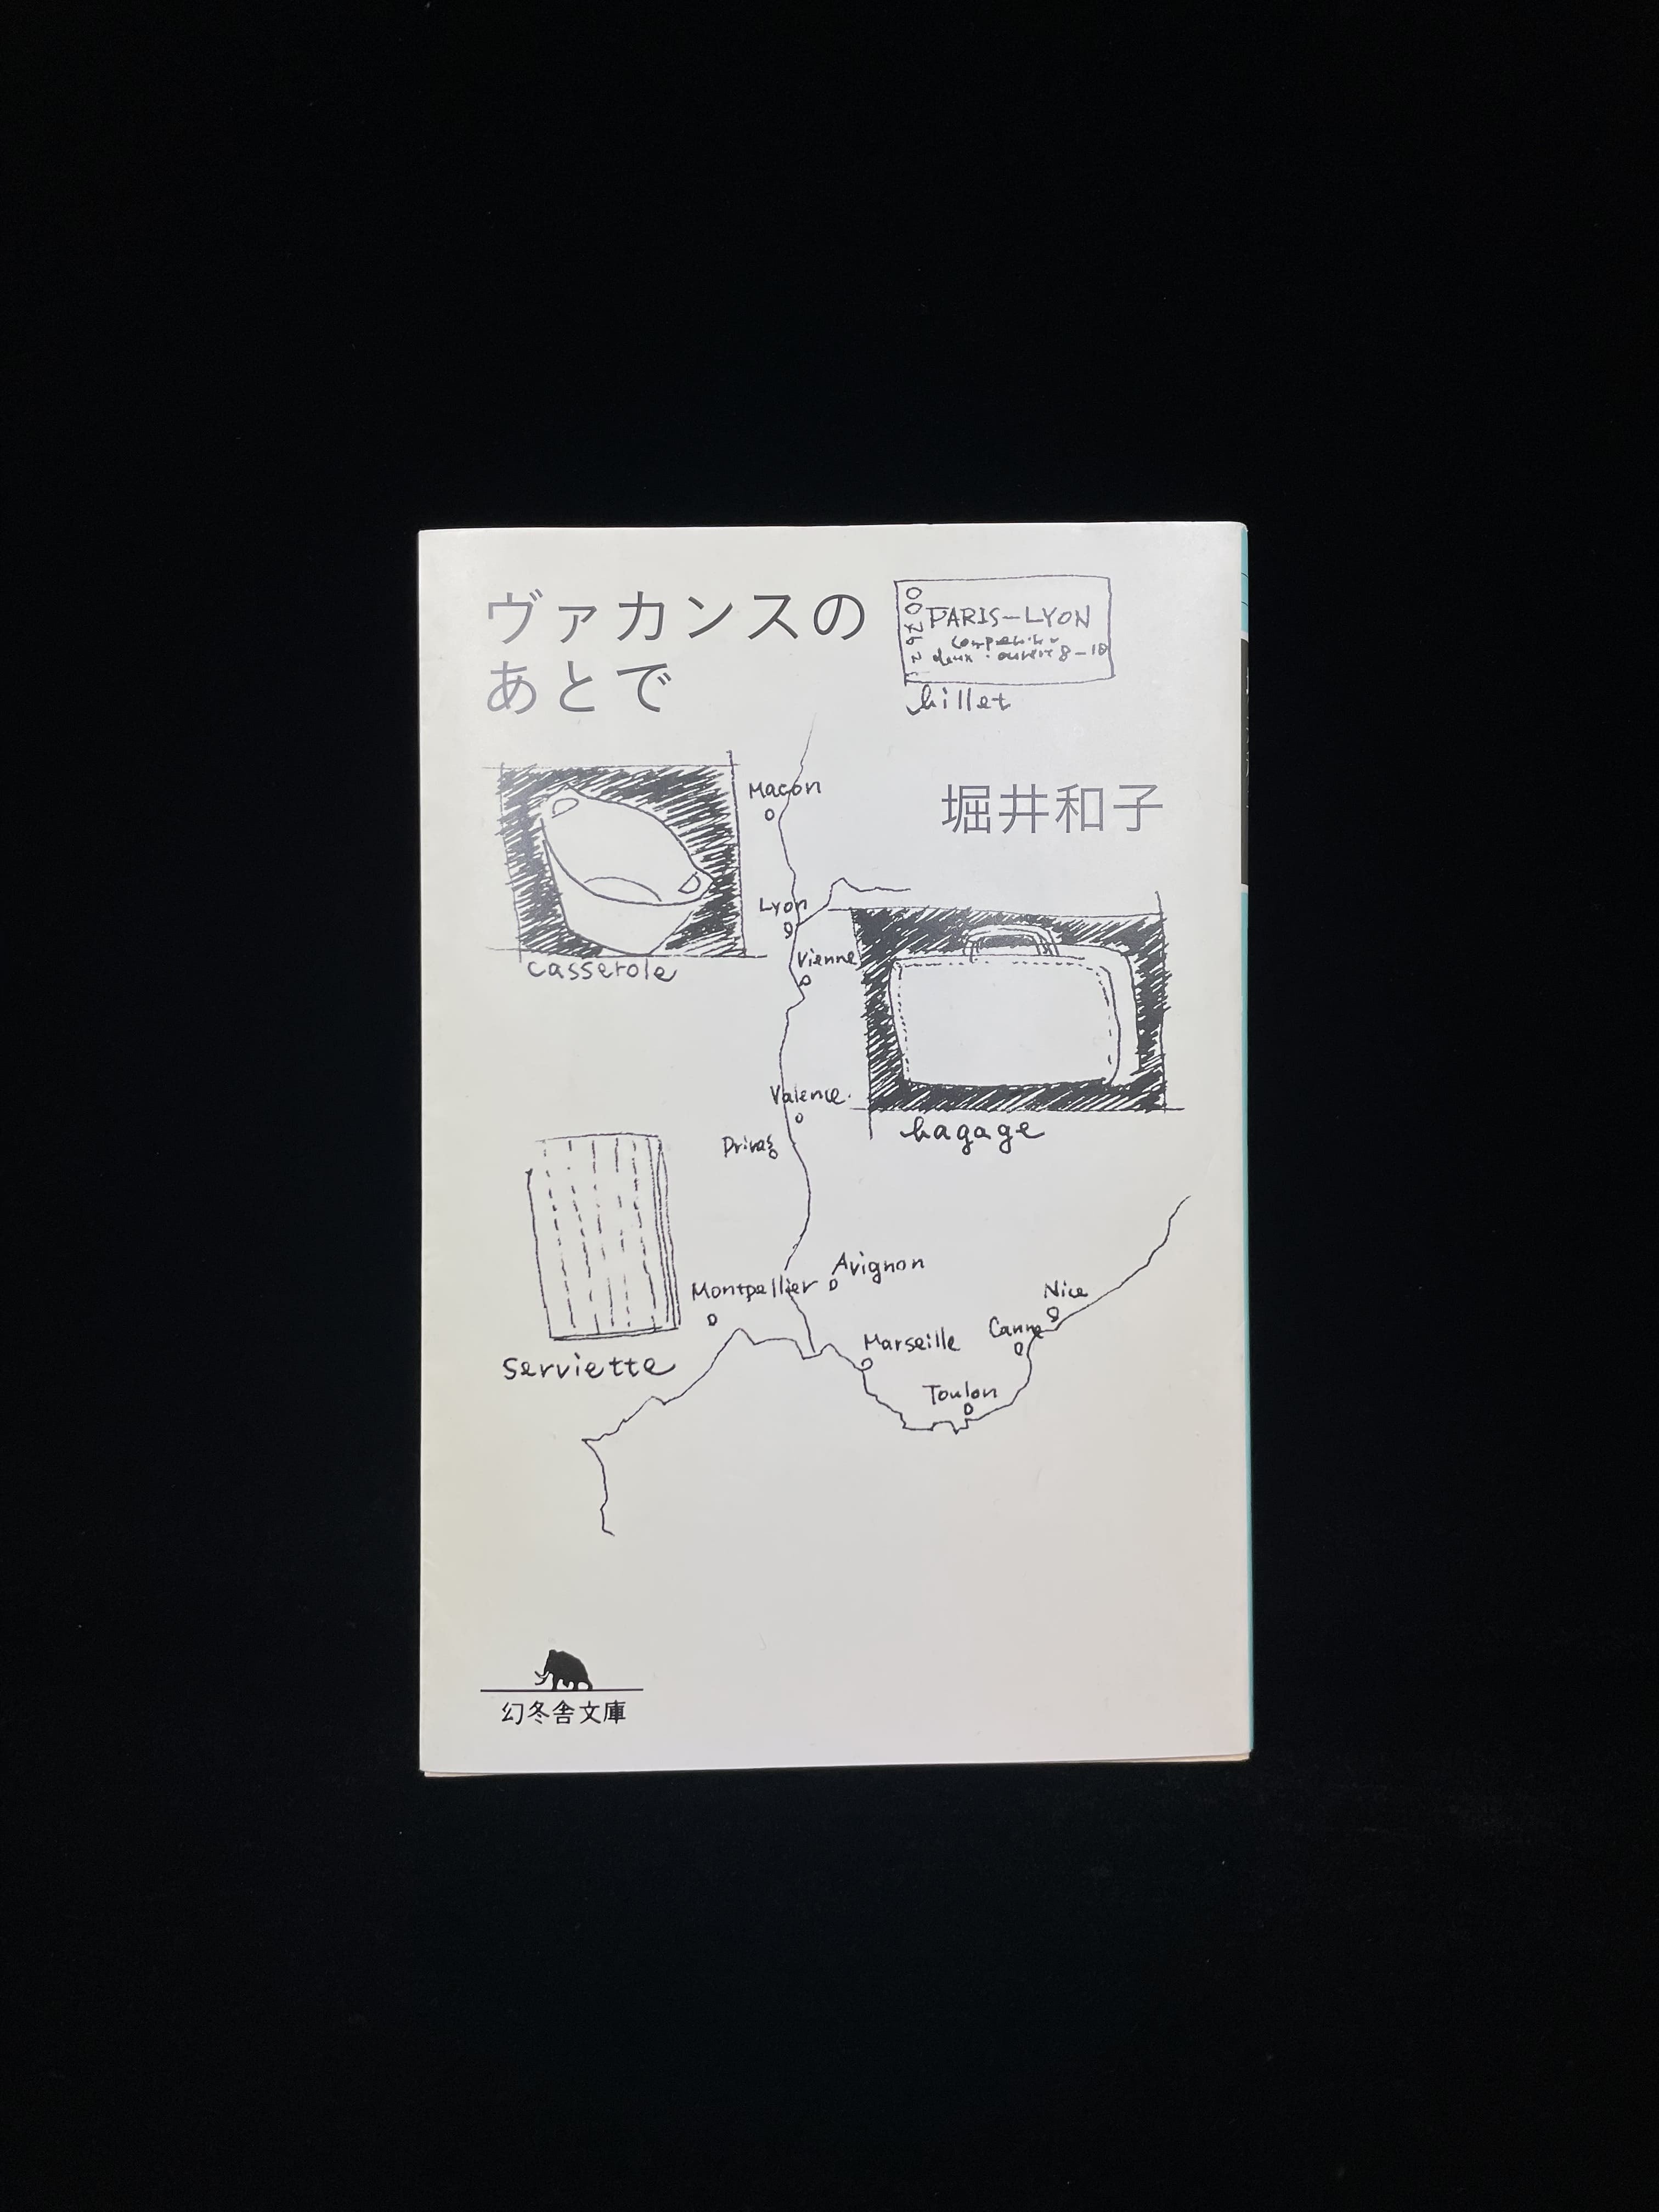 ヴァカンスの
あとで
PARIS-LYON
8-10
billet
堀井和子
Macon
Lyon
Vienne
casserole
bagage
Valence
Privas
serviette
Avignon
Montpellier
Nice
Canne
Marseille
Toulon
幻冬舎文庫